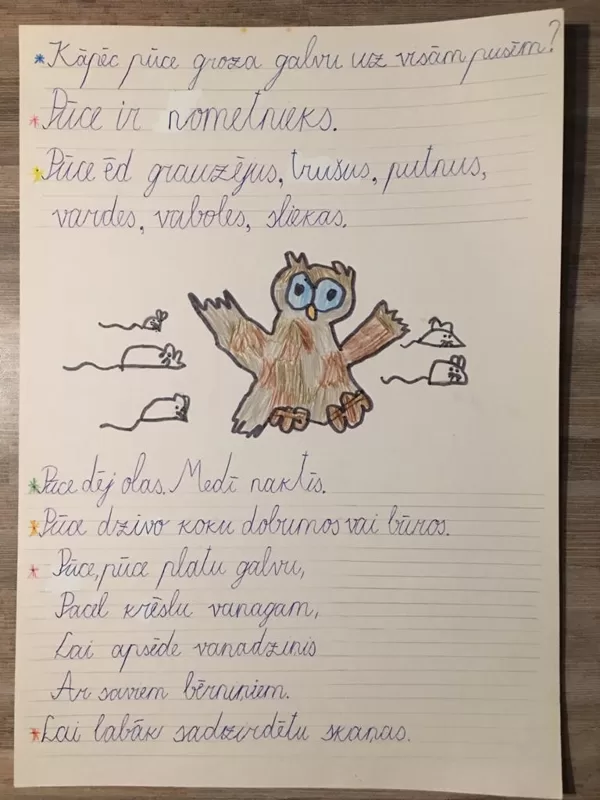 * Kāpēc pūce groza galvu uz visām pusēm?
* Pūce ir nometnieks.
* Pūce ēd grauzējus, trušus, putnus,
vardes, vaboles, sliekas.
* Pūce dēj olas. Medī naktīs.
* Pūce dzīvo koku dobumos vai būros.
* Pūce, pūce platu galvu,
Pacel krēslu vanagam,
Lai apsēde vanadzinis
Ar saviem bērniniem.
* Lai labāk sadzirdētu skaņas.